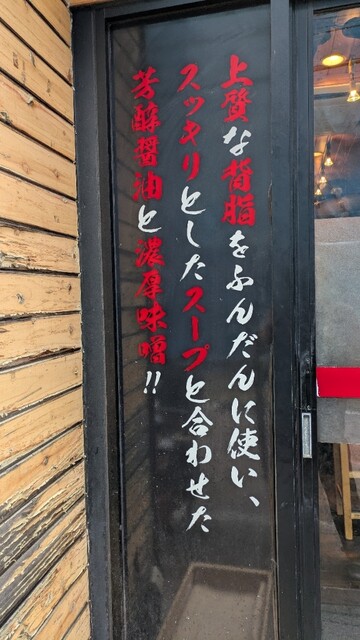 上質な背脂をふんだんに使い、
スッキリとしたスープと合わせた
芳醇醤油と濃厚味噌!!